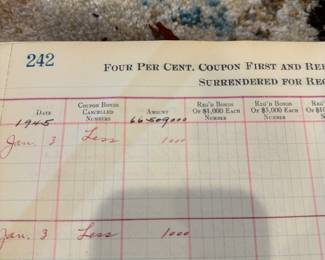 242
FOUR PER CENT. COUPON FIRST AND REF
SURRENDERED FOR REG
DATE
COUPON BONDS CANCELLED NUMBERS
AMOUNT
REG'D BONDS OF $1,000 EACH NUMBER
REG'D BONDS OF $5,000 EACH NUMBER
REG'D BONDS
1945 66509000
Jan. 3 Less 1000
Jan. 3 Less 1000